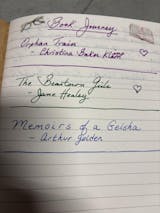 Book Journey
Orphan Train
- Christina Baker Kline
The Beantown Girls
- Jane Healey
Memoirs of a Geisha
- Arthur Golden